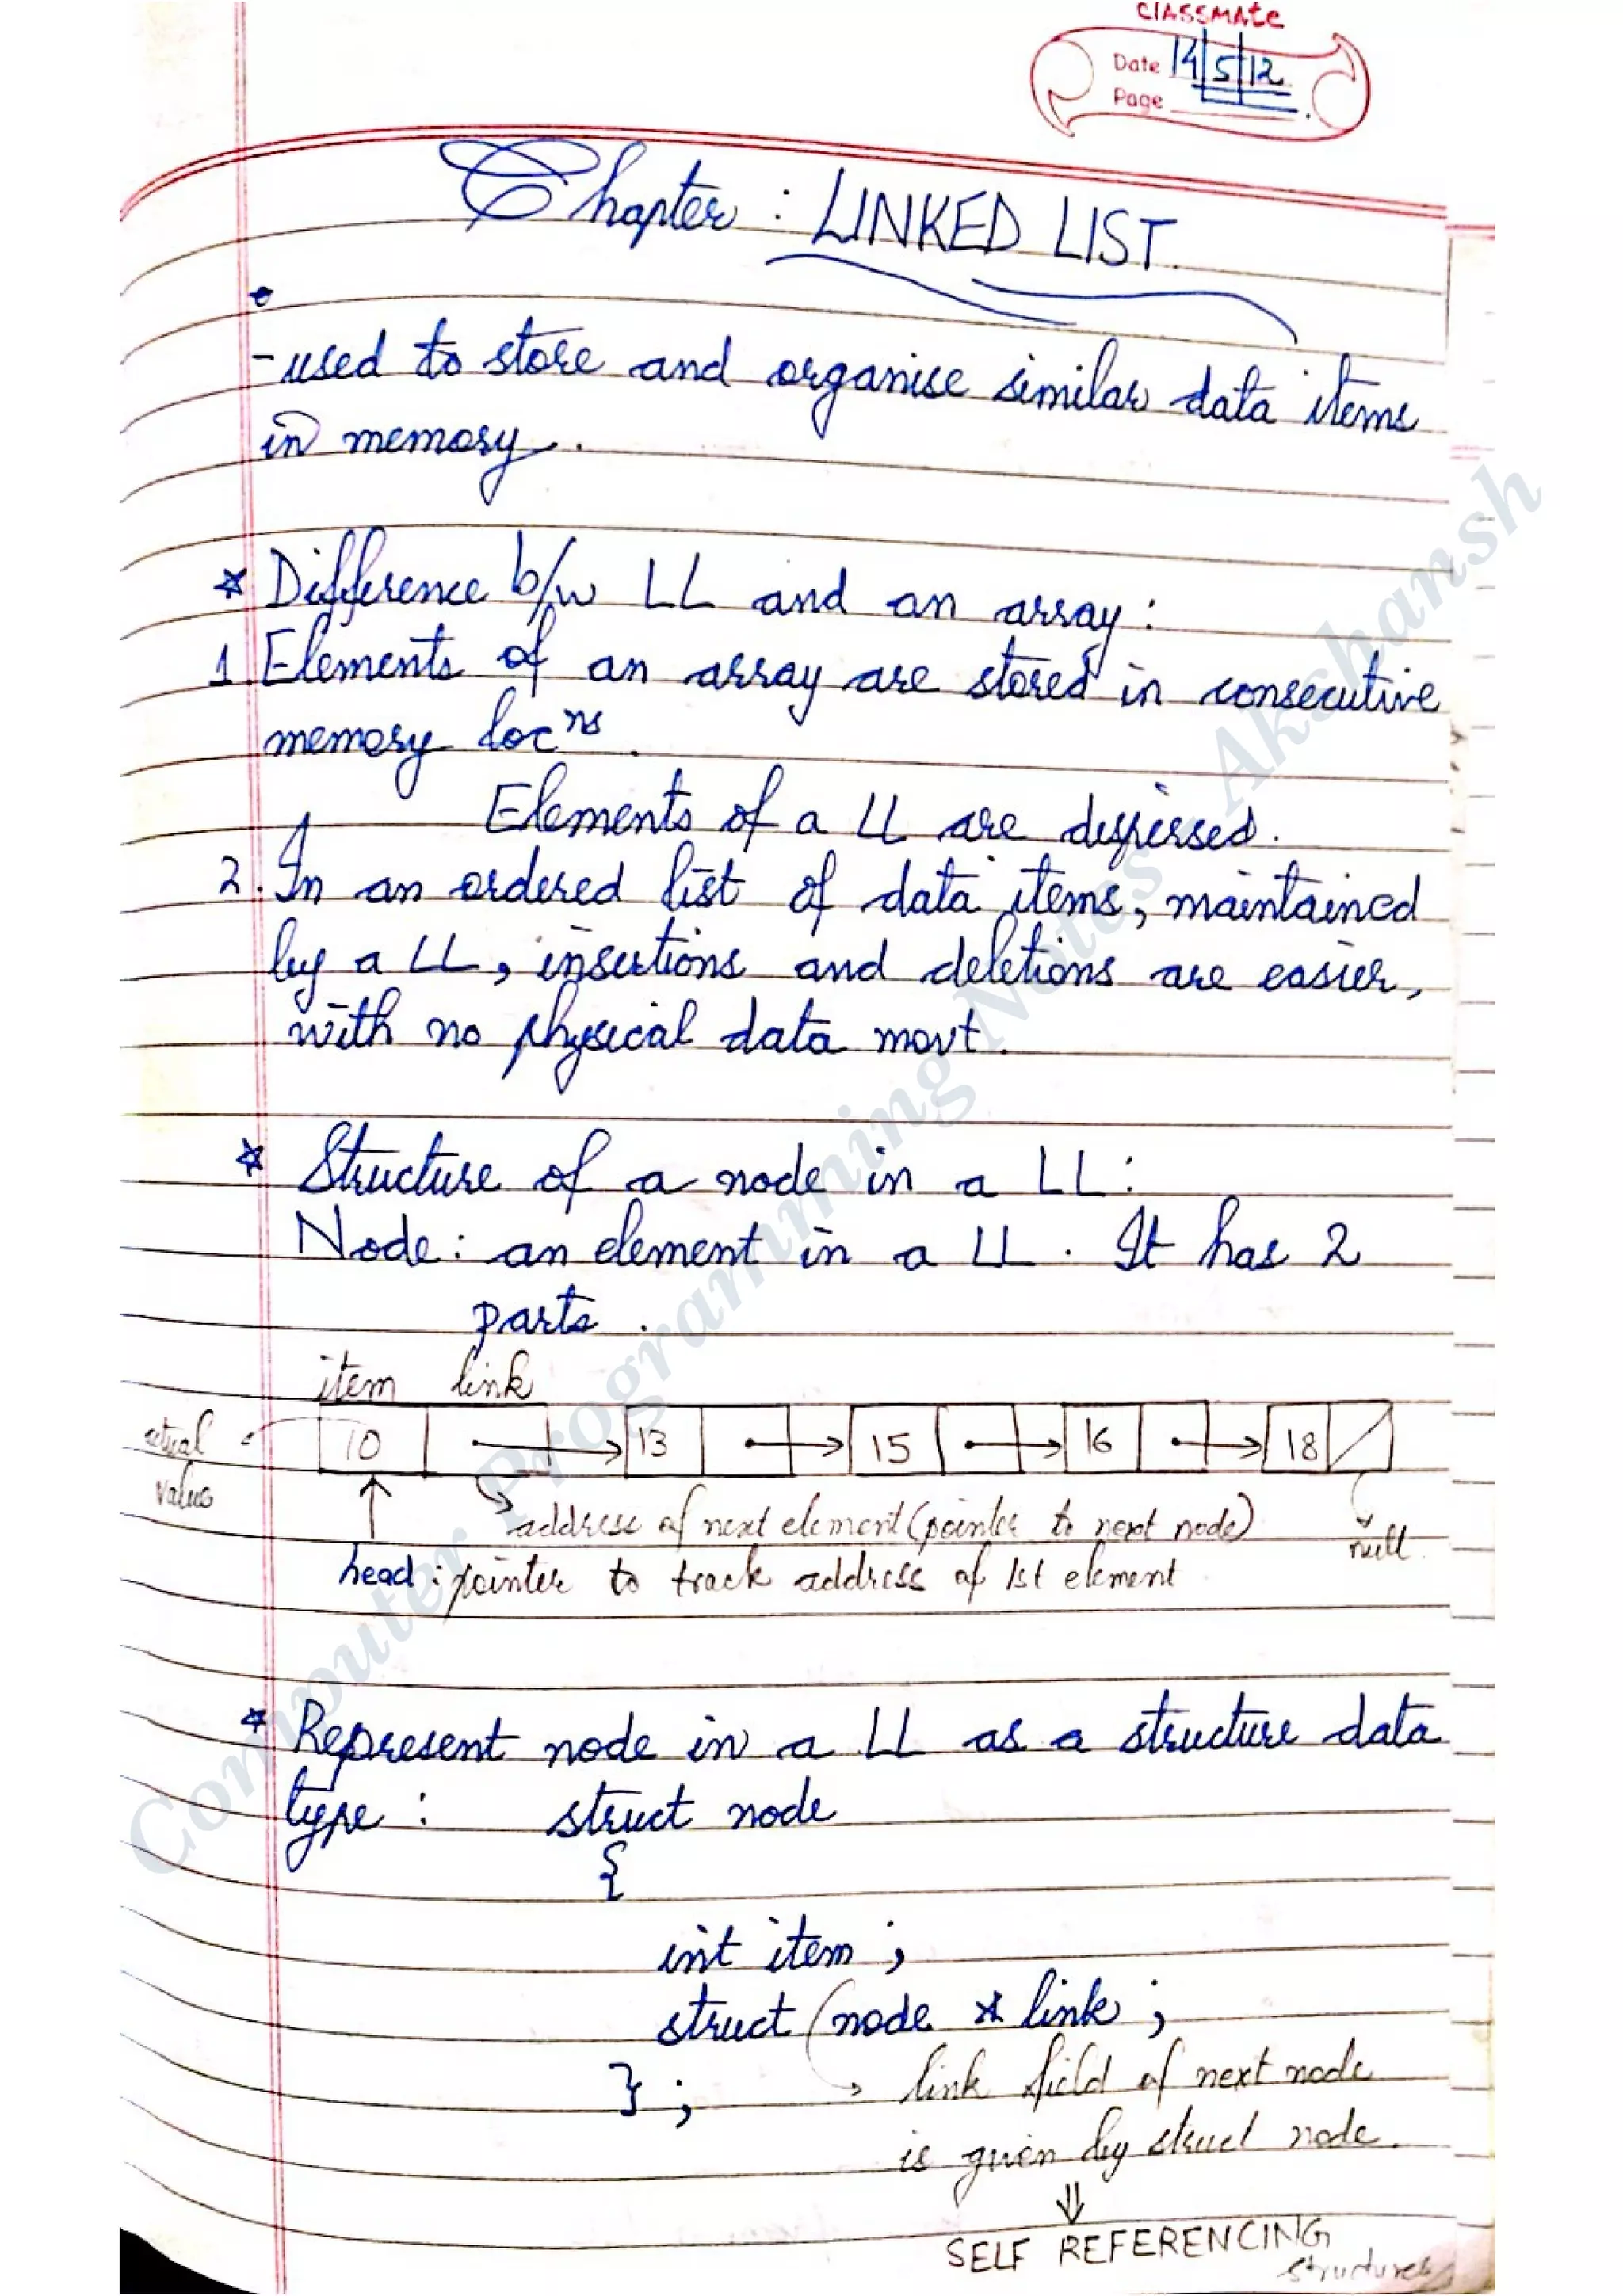 classmate
Date 14/5/12
Page
Chapter : LINKED LIST.
- used to store and organise similar data items
in memory.
* Difference b/w LL and an array :
1. Elements of an array are stored in consecutive
memory locns.
Elements of a LL are dispersed.
2. In an ordered list of data items, maintained
by a LL, insertions and deletions are easier,
with no physical data movt.
* Structure of a node in a LL :
Node : an element in a LL. It has 2
parts.
item link
actual value
10 13 15 16 18
address of next element (pointer to next node)
null
head : pointer to track address of 1st element
* Represent node in a LL as a structure data
type : struct node
{
int item ;
struct node * link ;
} ; link field of next node
is given by struct node.
⇓
SELF REFERENCING
structures
Computer Programming Notes - Akshansh